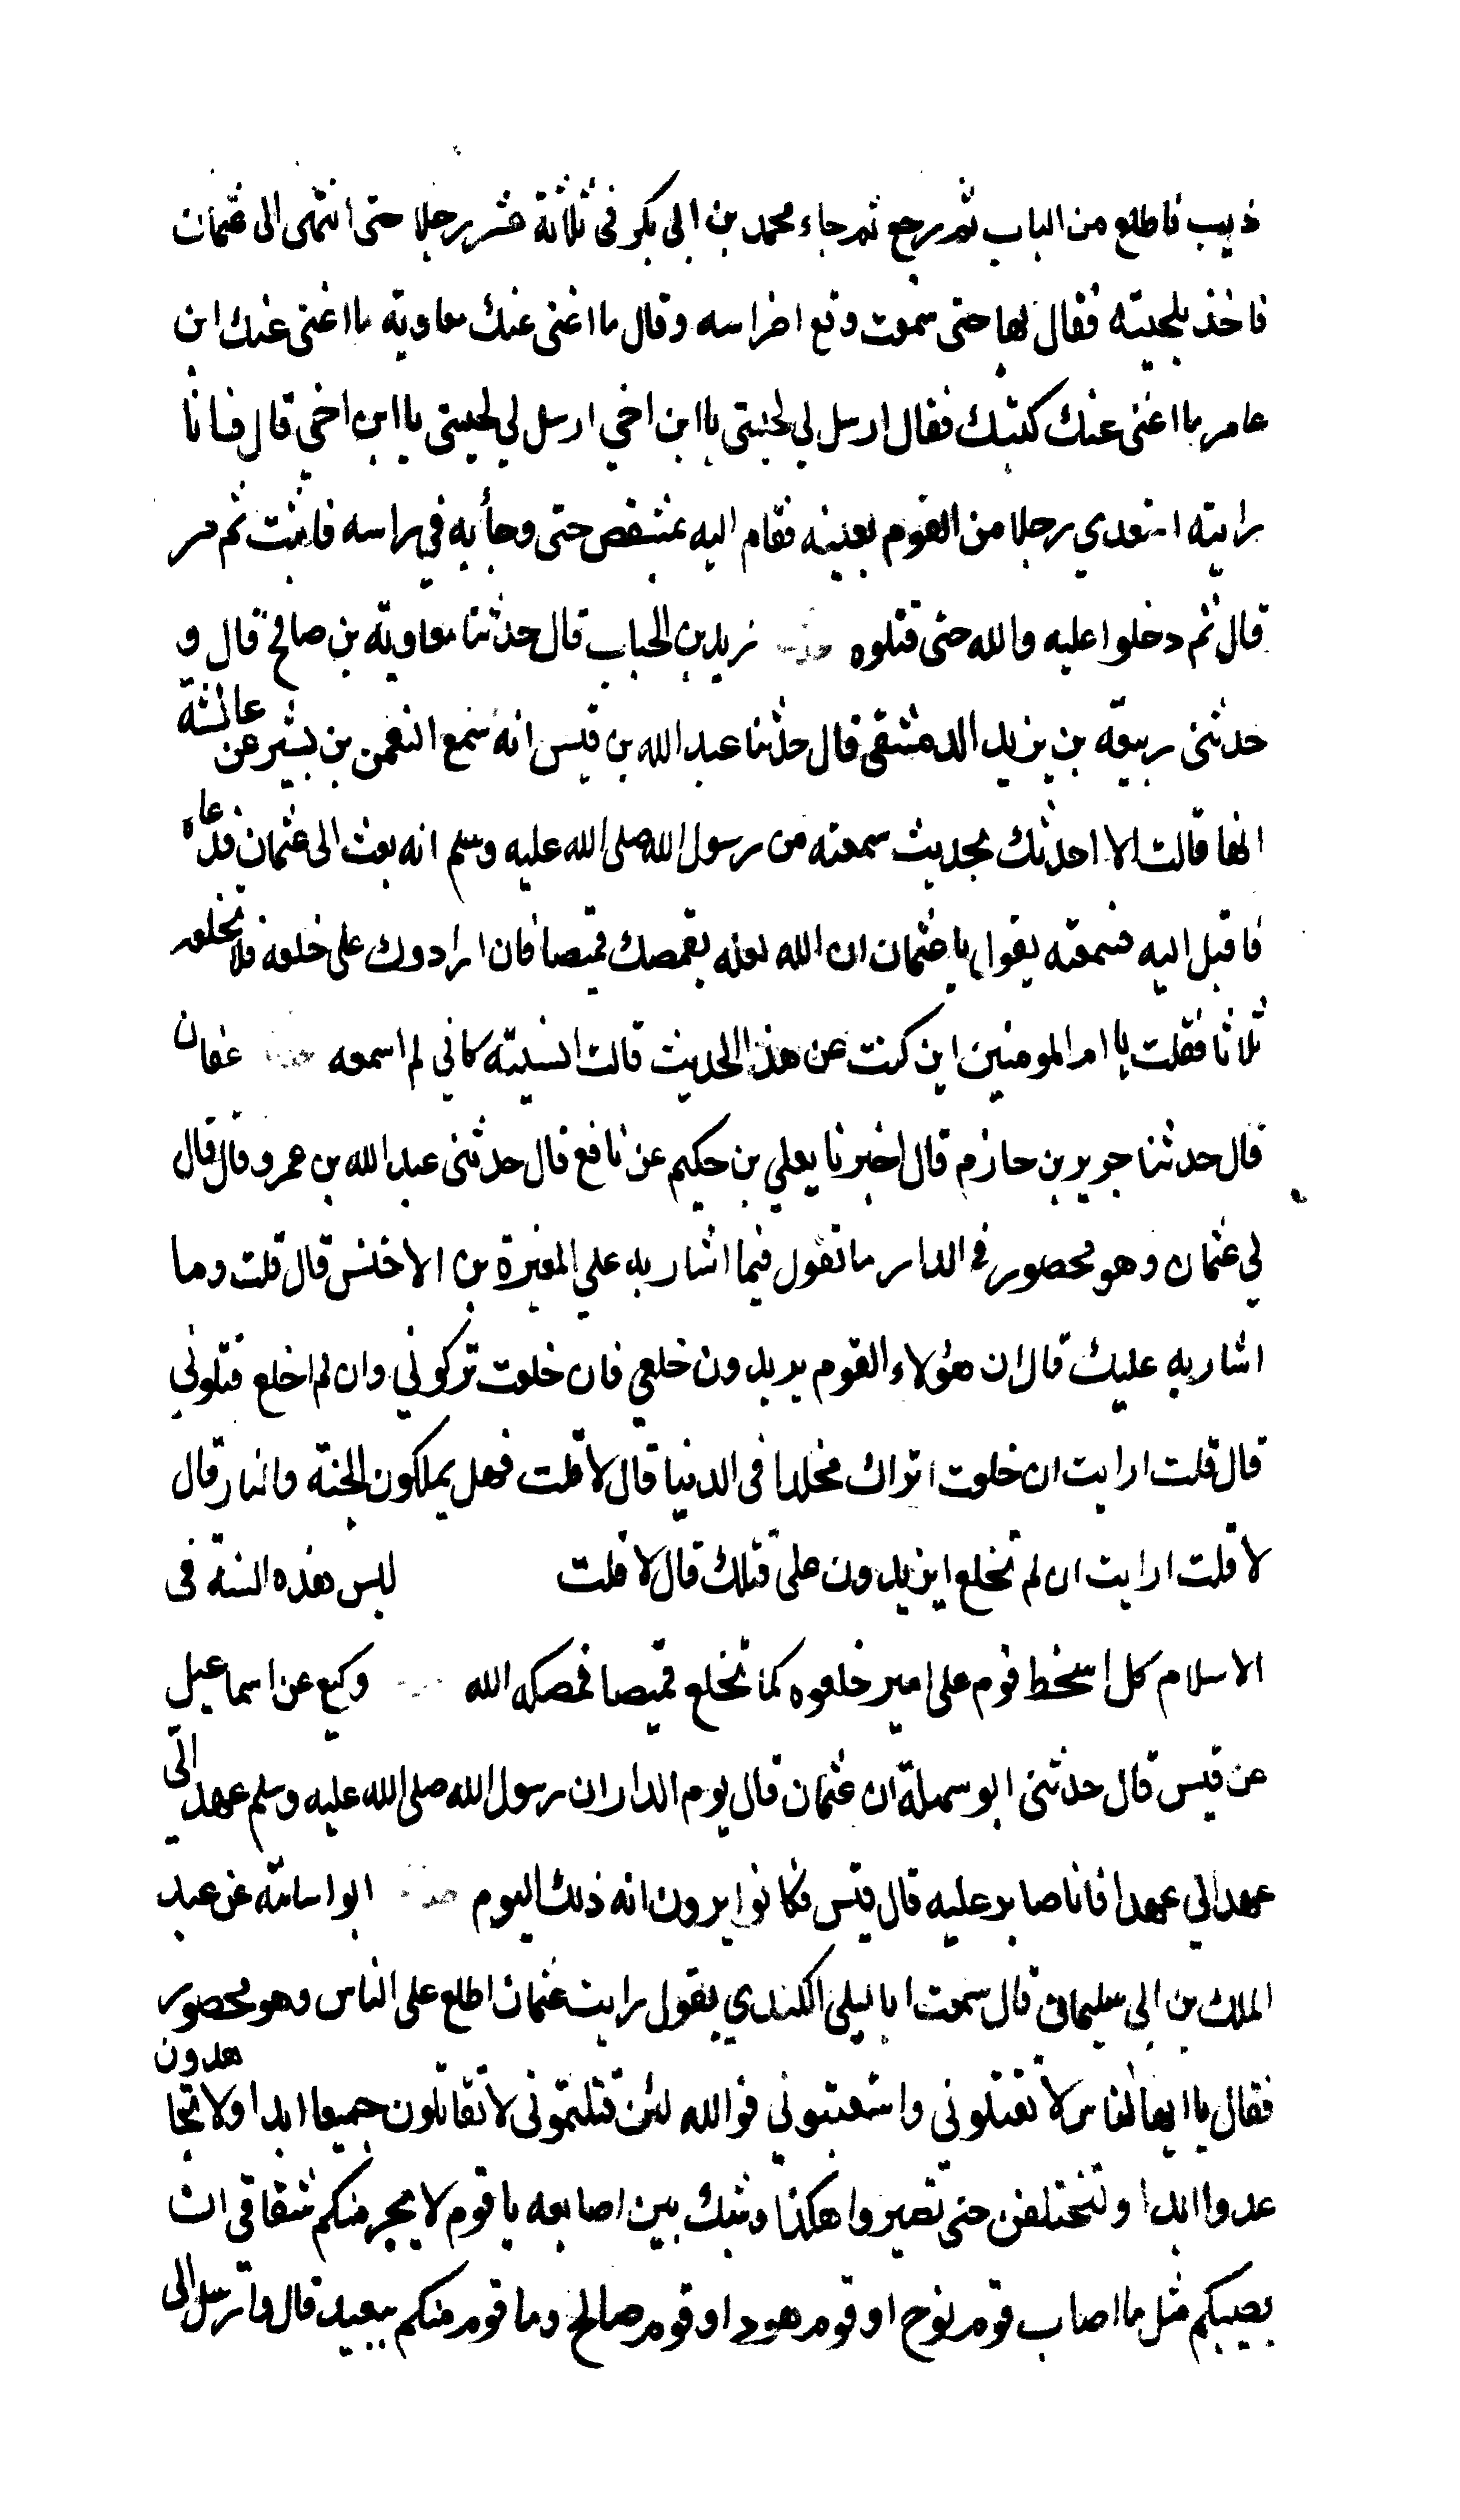 ذيب فاطلع من الباب ثم رجع ثم جاء محمد بن ابي بكر في ثلاثة عشر رجلا حتى انتهى الى عثمان
فاخذ بلحيته فقال بها حتى سمعت وقع اضراسه وقال ما اغنى عنك معاوية ما اغنى عنك ابن
عامر ما اغنى عنك كتبك فقال ارسل لي لحيتي يا ابن اخي ارسل لي لحيتي يا ابن اخي قال فانا
رايته استعدي رجلا من القوم بعينه فقام اليه بمشقص حتى وجأ به في راسه فاثبت ثم مر
قال ثم دخلوا عليه والله حتى قتلوه حدثنا زيد بن الحباب قال حدثنا معاوية بن صالح قال و
حدثني ربيعة بن يزيد الدمشقي قال حدثنا عبد الله بن قيس انه سمع النعمن بن بشير عن عائشة
انها قالت الا احدثك بحديث سمعته من رسول الله صلى الله عليه وسلم انه بعث الى عثمان فدعاه
فاقبل اليه فسمعته يقول يا عثمان ان الله لعله يقمصك قميصا فان ارادوك على خلعه فلا تخلعه
ثلاثا فقلت يا ام المومنين اين كنت عن هذا الحديث قالت انسيته كاني لم اسمعه حدثنا عفان
قال حدثنا جرير بن حازم قال اخبرنا يعلي بن حكيم عن نافع قال حدثني عبد الله بن عمر وقال قال
لي عثمان وهو محصور في الدار ما تقول فيما اشار به علي المغيرة بن الاخنس قال قلت وما
اشار به عليك قال ان هؤلاء القوم يريدون خلعي فان خلعت تركوني وان لم اخلع قتلوني
قال قلت ارايت ان خلعت اتراك مخلدا في الدنيا قال لا قلت فهل يملكون الجنة والنار قال
لا قلت ارايت ان لم تخلع ايزيدون على قتلك قال لا قلت ليس هذه السنة في
الاسلام كل اسخط قوم على امير خلعوه كما تخلع قميصا قمصكه الله وكيع عن اسماعيل
عن قيس قال حدثني ابو سهلة ان عثمان قال يوم الدار ان رسول الله صلى الله عليه وسلم عهد الي
عهد الي عهدا فانا صابر عليه قال قيس فكانوا يرون انه ذلك اليوم حدثنا ابو اسامة عن عبد
الملك بن ابي سليمان قال سمعت ابا ليلى الكندي يقول رايت عثمان اطلع على الناس وهو محصور
فقال يا ايها الناس لا تقتلوني واستعتبوني فوالله لئن قتلتموني لا تقاتلون جميعا ابدا ولا تجاهدون
عدوا ابدا ولتختلفن حتى تصيروا هكذا وشبك بين اصابعه يا قوم لا يجرمنكم شقاقي ان
يصيبكم مثل ما اصاب قوم نوح او قوم هود او قوم صالح وما قوم منكم ببعيد قال وارسل الى